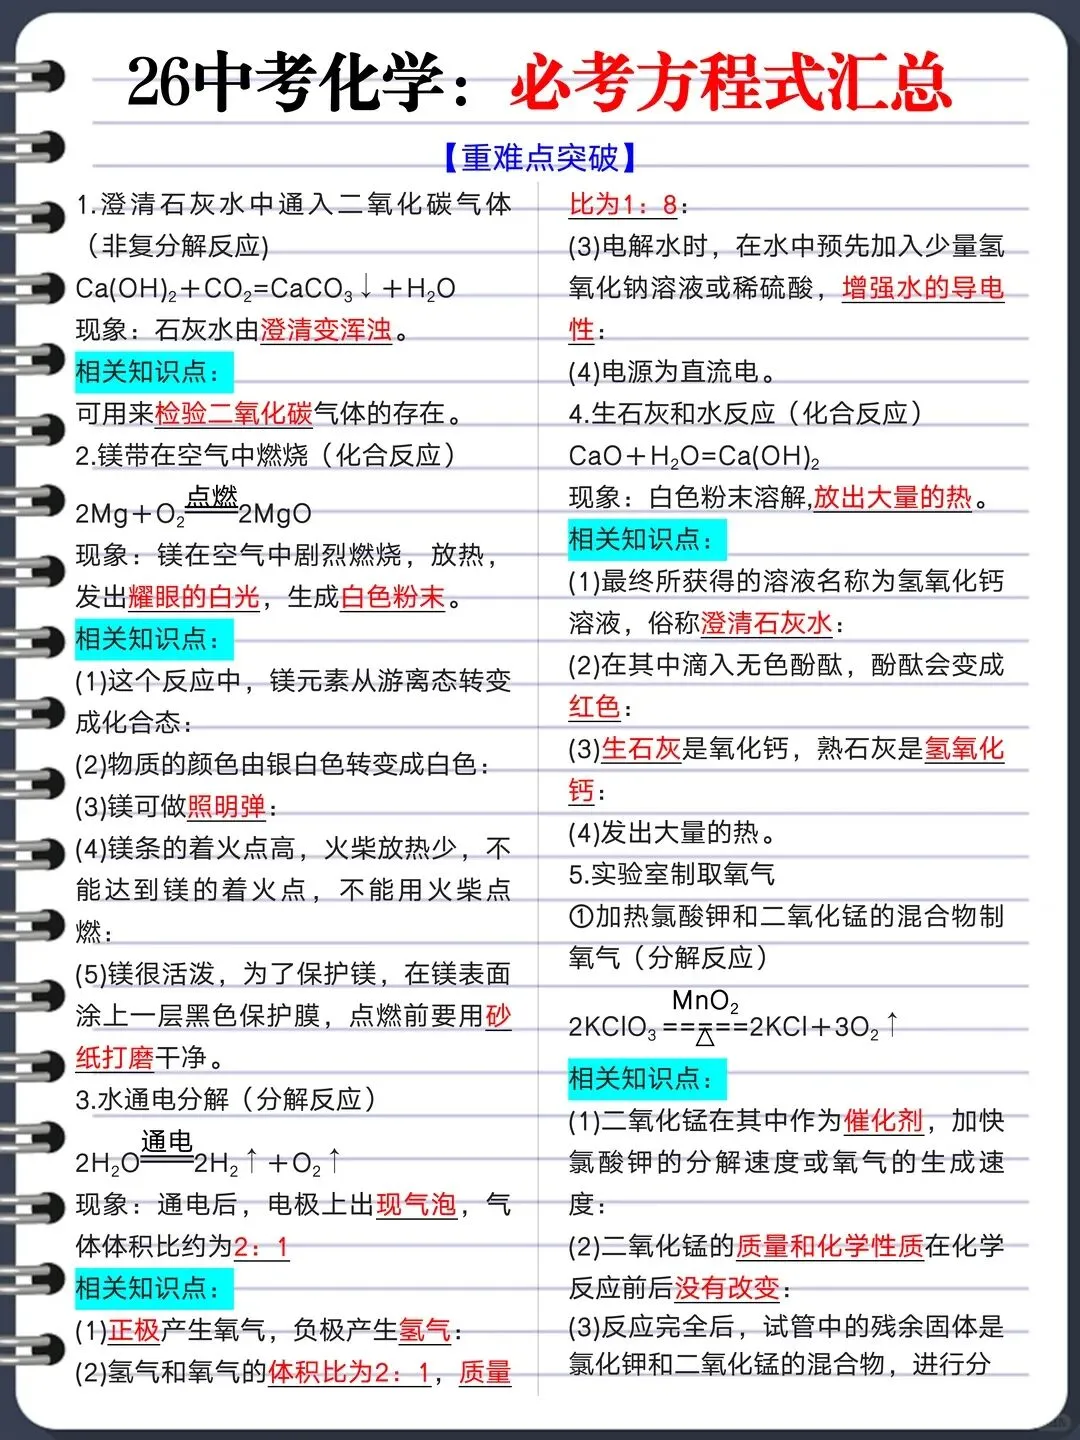 26中考化学：必考方程式汇总
【重难点突破】
1.澄清石灰水中通入二氧化碳气体
（非复分解反应)
Ca(OH)₂＋CO₂=CaCO₃↓＋H₂O
现象：石灰水由澄清变浑浊。
相关知识点：
可用来检验二氧化碳气体的存在。
2.镁带在空气中燃烧（化合反应）
点燃
2Mg＋O₂══2MgO
现象：镁在空气中剧烈燃烧，放热，
发出耀眼的白光，生成白色粉末。
相关知识点：
(1)这个反应中，镁元素从游离态转变
成化合态：
(2)物质的颜色由银白色转变成白色：
(3)镁可做照明弹：
(4)镁条的着火点高，火柴放热少，不
能达到镁的着火点，不能用火柴点
燃：
(5)镁很活泼，为了保护镁，在镁表面
涂上一层黑色保护膜，点燃前要用砂
纸打磨干净。
3.水通电分解（分解反应）
通电
2H₂O══2H₂↑＋O₂↑
现象：通电后，电极上出现气泡，气
体体积比约为2：1
相关知识点：
(1)正极产生氧气，负极产生氢气：
(2)氢气和氧气的体积比为2：1，质量
比为1：8：
(3)电解水时，在水中预先加入少量氢
氧化钠溶液或稀硫酸，增强水的导电
性：
(4)电源为直流电。
4.生石灰和水反应（化合反应）
CaO＋H₂O=Ca(OH)₂
现象：白色粉末溶解,放出大量的热。
相关知识点：
(1)最终所获得的溶液名称为氢氧化钙
溶液，俗称澄清石灰水：
(2)在其中滴入无色酚酞，酚酞会变成
红色：
(3)生石灰是氧化钙，熟石灰是氢氧化
钙：
(4)发出大量的热。
5.实验室制取氧气
①加热氯酸钾和二氧化锰的混合物制
氧气（分解反应）
MnO₂
2KClO₃=====2KCl＋3O₂↑
△
相关知识点：
(1)二氧化锰在其中作为催化剂，加快
氯酸钾的分解速度或氧气的生成速
度：
(2)二氧化锰的质量和化学性质在化学
反应前后没有改变：
(3)反应完全后，试管中的残余固体是
氯化钾和二氧化锰的混合物，进行分